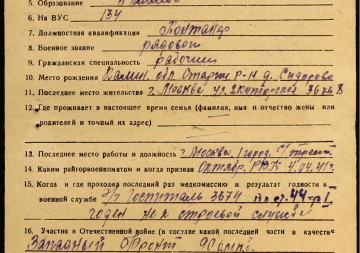 5. Образование
6. На ВУС 134
7. Должностная квалификация
8. Военное звание рядовой
9. Гражданская специальность рабочий
10. Место рождения Калин. обл. Старицк. Р-Н д. Сидорово
11. Последнее место жительства г. Москва ул.
12. Где проживает в настоящее время семья (фамилия, имя и отчество жены или
родителей и точный их адрес)
13. Последнее место работы и должность г. Москва, 1 город.
14. Каким райгорвоенкоматом и когда призван Октябр. РВК
15. Когда и где проходил последний раз медкомиссию и результат годности к
военной службе Госпиталь 3674
годен не к строевой службе
16. Участие в Отечественной войне (в составе какой последней части и в качестве
Западный Фронт